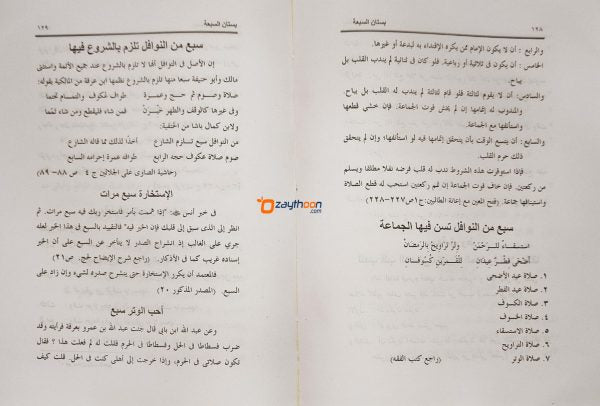 ١٢٨
بستان السبعة
والرابع : أن لا يكون الإمام ممن يكره الإقتداء به لبدعة أو غيرها.
الخامس : أن يكون فى ثنائية أو رباعية. فلو كان فى ثنائية لم يندب القلب بل
يباح.
والسادس: أن لا يقوم لثالثة فلو قام لثالثة لم يندب له القلب بل يباح.
والمندوب له إتمامها إن لم يخش فوت الجماعة. فإن خشي قطعها
واستأنفها مع الجماعة.
والسابع : أن يتسع الوقت بأن يتحقق إتمامها فيه لو استأنفها؛ وإن لم يتحقق
ذلك حرم القلب.
فإذا استوفرت هذه الشروط ندب له قلب فرضه نفلا مطلقا ويسلم
من ركعتين. فإن خاف فوت الجماعة إن تم ركعتين استحب له قطع الصلاة
واستينافها جماعة. (فتح المعين مع إعانة الطالبين: ج١ص٢٢٧-٢٢٨)
سبع من النوافل تسن فيها الجماعة
استسقاء للرحمن وتر تراويح بالرمضان
أضحى فطر عيدان للقمرين كسوفان
١. صلاة عيد الأضحى
٢. صلاة عيد الفطر
٣. صلاة الكسوف
٤. صلاة الخسوف
٥. صلاة الاستسقاء
٦. صلاة التراويح
٧. صلاة الوتر (راجع كتب الفقه)
بستان السبعة
١٢٩
سبع من النوافل تلزم بالشروع فيها
إن الأصل فى النوافل أنها لا تلزم بالشروع عند جميع الأئمة واستثنى
مالك وأبو حنيفة سبعا منها تلزم بالشروع نظمها ابن عرفة من المالكية بقوله:
صلاة وصوم ثم حج وعمرة طواف عكوف والتمام تحتما
وفى غيرها كالوقف والطهر خيرن فمن شاء فليقطع ومن شاء تمما
ولابن كمال باشا من الحنفية:
من النوافل سبع تستلزم الشارع أخذا لذلك مما قاله الشارع
صوم صلاة عكوف حجه الرابع طوافه عمرة إحرامه السابع
(حاشية الصاوى على الجلالين ج ٤ ص ٨٨-٨٩)
الإستخارة سبع مرات
فى خبر أنس : "إذا هممت بأمر فاستخر ربك فيه سبع مرات. ثم
انظر إلى الذى سبق إلى قلبك فإن الخير فيه" فالتقييد بالسبع فى هذا الخبر لعله
جرى على الغالب إذ انشراح الصدر لا يتأخر عن السبع على أن الخبر
إسناده غريب كما فى الأذكار. (راجع شرح الإيضاح لحج. ص٢١)
فالمعتمد أن يكرر الإستخارة حتى ينشرح صدره لشيء وإن زاد على
السبع. (المصدر المذكور ٢٠)
أحب الوتر سبع
وعن عبد الله ابن بابي قال جئت عبد الله بن عمرو بعرفة فرأيته وقد
ضرب فسطاطا فى الحل وفسطاطا فى الحرم فقلت له لم فعلت هذا ؟ فقال
تكون صلاتى فى الحرم، وإذا خرجت إلى أهلى كنت فى الحل. قلت كيف
Ozaythoon
.com